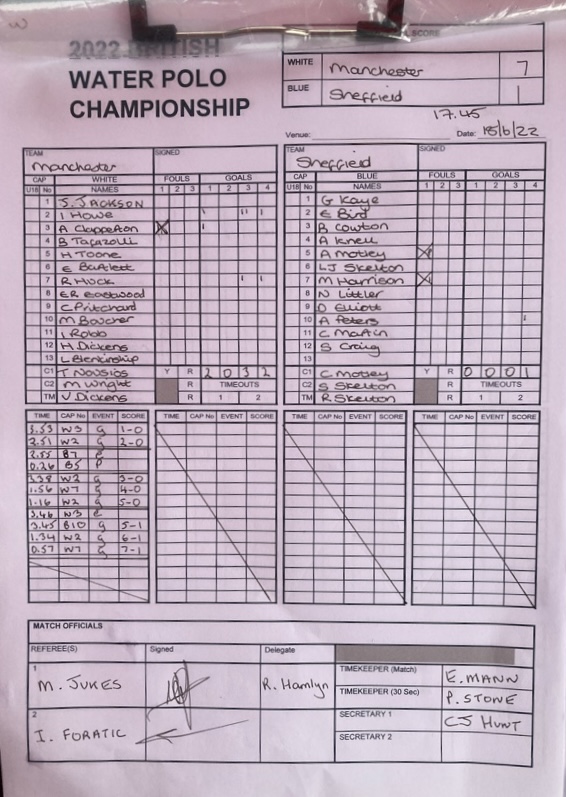 2022 BRITISH
WATER POLO
CHAMPIONSHIP
SCORE
WHITE Manchester 7
BLUE Sheffield 1
17.45
Venue: Date: 18/6/22
TEAM Manchester SIGNED
CAP WHITE FOULS GOALS
U18 No NAMES 1 2 3 1 2 3 4
1 J. JACKSON
2 I Howe
3 A Clappeton
4 B Tafazolli
5 H Toone
6 E Bartlett
7 R Huck
8 ER Eastwood
9 C Pritchard
10 M Boucher
11 I Robb
12 H. Dickens
13 L Blenkinship
C1 T Nousios Y R 2 0 3 2
C2 M Wright R TIMEOUTS
TM V Dickens R 1 2
TEAM Sheffield SIGNED
CAP BLUE FOULS GOALS
U18 No NAMES 1 2 3 1 2 3 4
1 G Kaye
2 E Bird
3 B Cowton
4 A Knell
5 A Motley
6 LJ Skelton
7 M Harrison
8 N Littler
9 D Elliott
10 A Peters
11 C Martin
12 S Craig
13
C1 C Motley Y R 0 0 0 1
C2 S Skelton R TIMEOUTS
TM R Skelton R 1 2
TIME CAP No EVENT SCORE
3.53 W3 g 1-0
2.51 W2 g 2-0
2.55 B7 e
0.26 B5 P
3.38 W2 g 3-0
1.56 W7 g 4-0
1.16 W2 g 5-0
3.46 W3 e
3.45 B10 g 5-1
1.34 W2 g 6-1
0.57 W7 g 7-1
TIME CAP No EVENT SCORE
TIME CAP No EVENT SCORE
TIME CAP No EVENT SCORE
MATCH OFFICIALS
REFEREE(S) Signed Delegate
1 M. JUKES R. Hamlyn
2 I. FORATIC
TIMEKEEPER (Match) E. MANN
TIMEKEEPER (30 Sec) P. STONE
SECRETARY 1 CJ HUNT
SECRETARY 2